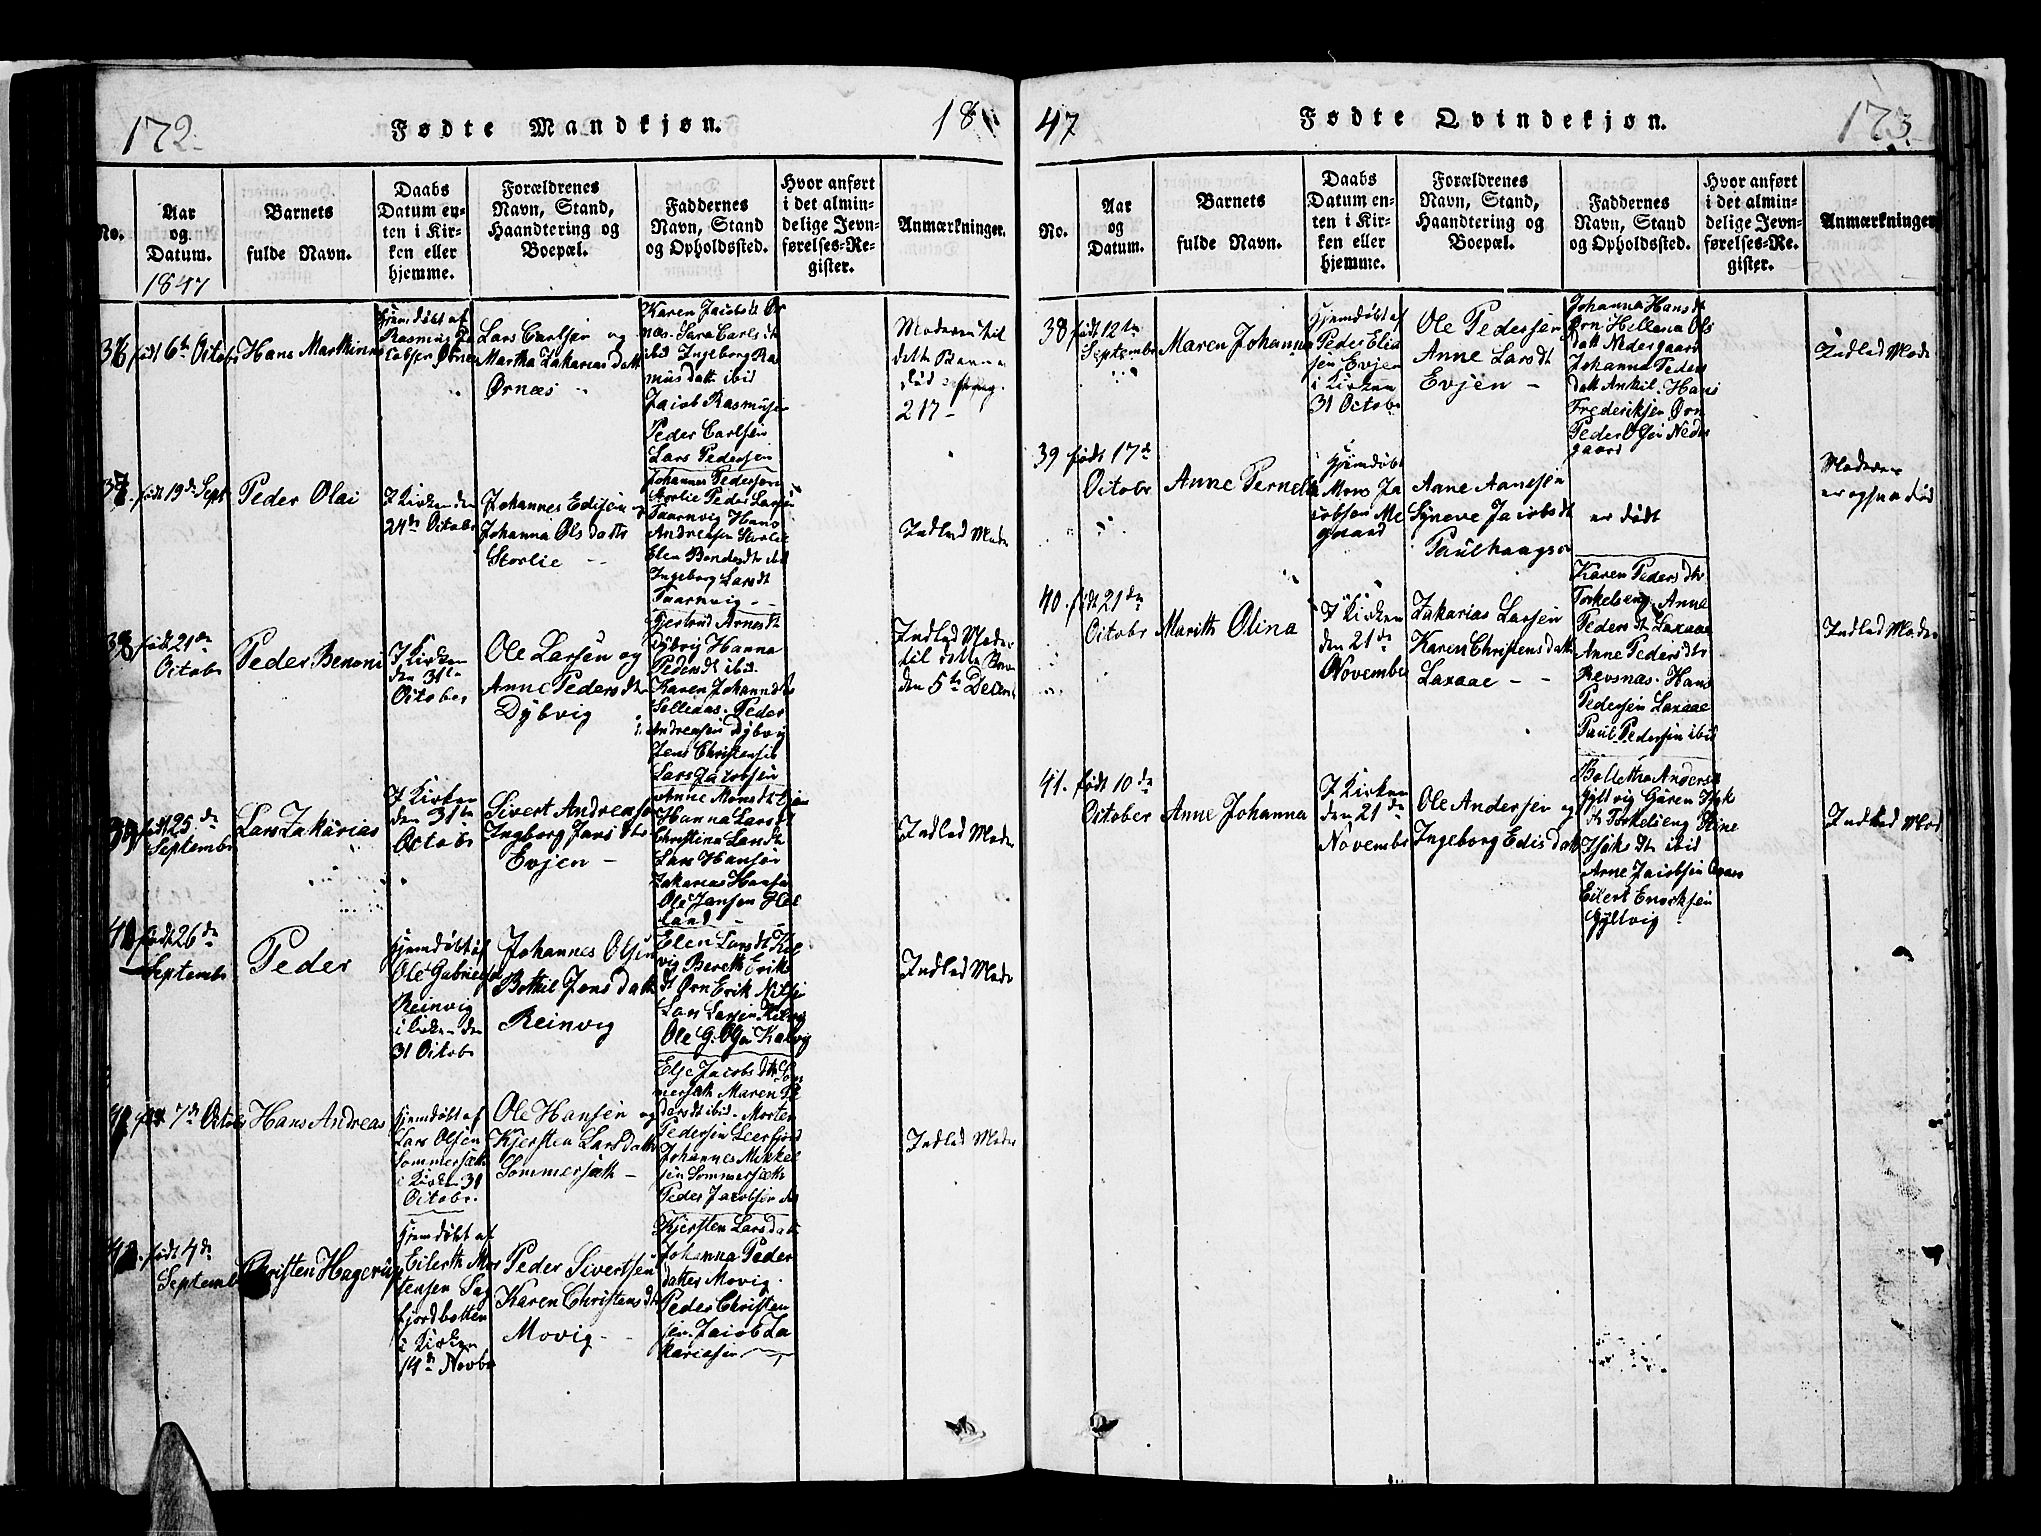 172.
Fødte Mandkjøn.
18
No.
Aar
og
Datum.
1847
Barnets
fulde Navn.
Daabs
Datum en-
ten i Kir-
ken eller
hjemme.
Forældrenes
Navn, Stand,
Haandtering og
Boepæl.
Faddernes
Navn, Stand
og Opholdssted.
Hvor anført
i det almin-
delige Jevn-
førelses-Re-
gister.
Anmærkninger.
36 født 6te Octobr
Hans Marthinus
Hjemdøbt af
Rasmus Ja
cobsen Ørnes
Lars Carlsen og
Martha Zakarias datt
Ørnæs
Karen Jacobsdt Ør
næs. Sara Carlsdt
ibid Ingeborg Ras
mus datt ibid
Jacob Rasmusen
Peder Carlsen
Lars Pedersen
Moderen til
dette Barn
217-
37. født 19de Sept
Peder Olai
I Kirken den
24de Octobr
Johannes Edisen og
Johanna Olsdatt
Storlie
Johannes Pedersen
Storlie Peder Larsen
Taarnvig Hans
Andreasen Storlie
Elen Bendesdt ibid
Ingeborg Larsdt
Taarnvig
Indled Moder
38 født 21de
Octobr
Peder Benoni
I Kirken
den 31te
October
Ole Larsen og
Anne Pedersdtr
Dybvig
Gjertrud Arnesdt
Dybvig Hanna
Pedersdt ibid.
Karen Johannsdtr
Peder
Andreasen Dybvig
Jens Christensen
Lars Jacobsen
Indled Moder
til dette Barn
den 5te Decemb
39 født 25de
Septembr
Lars Zakarias
I Kirken
den 31te
Octobr
Sivert Andreasen
Ingborg Jansdtr
Evjen -
Anne Monsdt Evjen
Hanna Larsdt
Christina Larsdt
Lars Hansen
Zakarias Hansen
Ole Jansen Hel
land
Indled Moder
40 født 26de
Septembr
Peder
Hjemdøbt af
Ole Gabrielsen
Reinvig
i Kirken den
31 Octobr
Johannes Olsen
Bothil Jens datt
Reinvig
Elen Larsdt Kal
vig Bereth Eriks
dt Ørn Erik Nilsen
Lars Larsen Kalvig
Ole G. Olsen Kalvig
Indled Moder
41 født 7de Octobr
Hans Andreas
Hjemdøbt af
Lars Olsen
Sommersæth
i Kirken 31
Octobr.
Ole Hansen og
Kjersten Larsdatt
Sommersæth -
Else Jacobsdtr Som
mersæth Maren Pe
dersdt ibid. Morten
Pedersen Leerfjord
Johannes Mikkel
sen Sommersæth
Peder Jacobsen
Indled Moder
42. født 4de
Septembr
Christen Hagerup
Hjemdøbt af
Eilerth Mor
tensen Sag
fjordbotten
i Kirken
14de Novbr
Peder Sivertsen
Karen Christensdtr
Movig -
Kjersten Larsdatt
Johanna Peders
datter Movig.
Peder Christen
sen. Jacob Za
kariasen
47
Fødte Qvindekjøn.
173
No.
Aar
og
Datum.
Barnets
fulde Navn.
Daabs
Datum en-
ten i Kir-
ken eller
hjemme.
Forældrenes
Navn, Stand,
Haandtering og
Boepæl.
Faddernes
Navn, Stand
og Opholdssted.
Hvor anført
i det almin-
delige Jevn-
førelses-Re-
gister.
Anmærkninger
38 født 12te
Septembr
Maren Johanna
Hjemdøbt af
Peder Elia
sen Evjen
i Kirken
31 Octobr
Ole Pedersen
Anne Larsdt
Evjen -
Johanna Hansdt
Ørn Hellena Ols
datt Nedergaard
Johanna Peders
datt Ankil. Hans
Frederiksen Ørn
Peder Olsen Neder
gaard
Indled Moder
39 født 17de
Octobr
Anne Pernella
Hjemdøbt
Mons Ja
cobsen Me
gaard
Arne Arnesen
Syneve Jacobsdt
Paulhaagen
er dødt
Moderen
er ogsaa død
40. født 21de
Octobr
Marith Olina
I Kirken
den 21de
November
Zakarias Larsen
Karen Christensdatt
Laxaae - -
Karen Pedersdtr
Torkelseng. Anne
Pedersdt Laxaae
Anne Pedersdtr
Revsnæs. Hans
Pedersen Laxaae
Paul Pedersen ibid
Indled Moder
41. født 10de
October
Anne Johanna
I Kirken
den 21de
Novembr
Ole Andersen og
Ingeborg Edisdatt
Bolletha Anders
Gyltvig Guren Isak
dt Torkelseng Stine
Isaks dtr ibid
Arne Jacobsen
Eilert Enocksen
Gyltvig
Indled Mod